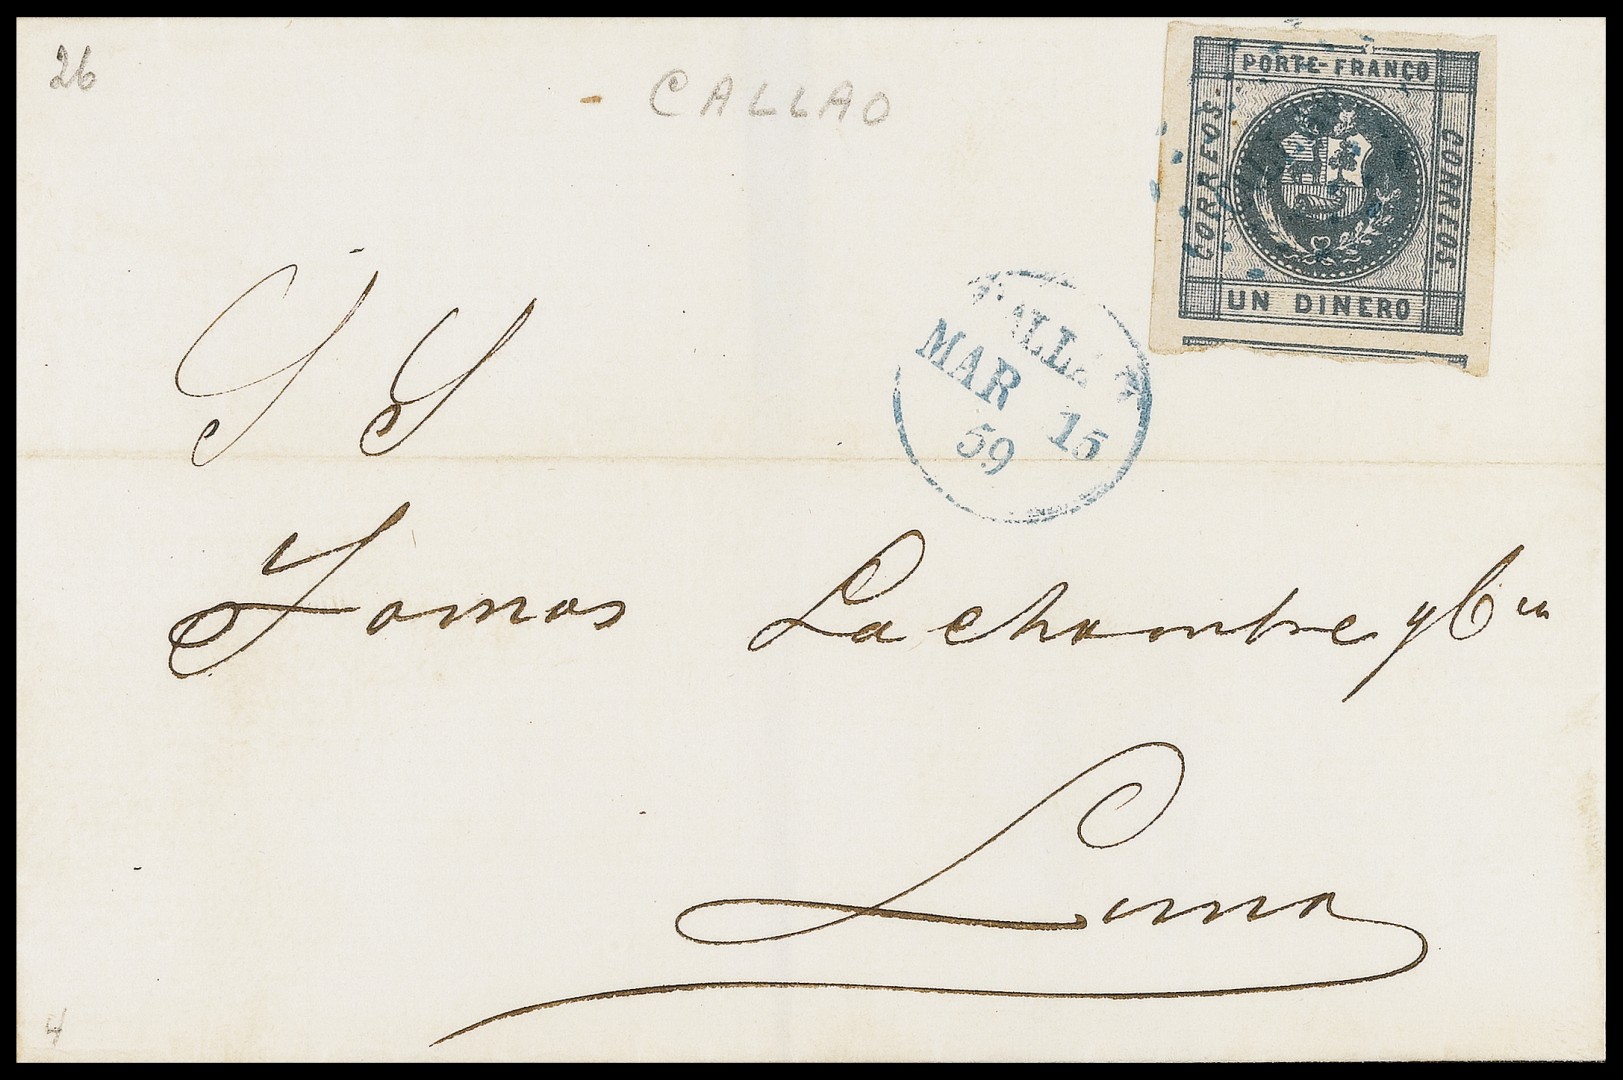 26
CALLAO
PORTE-FRANCO
CORREOS
CORREOS
UN DINERO
CALLAO
MAR 15
59
S S
Tomas Lachambre y Cia
Lima
4